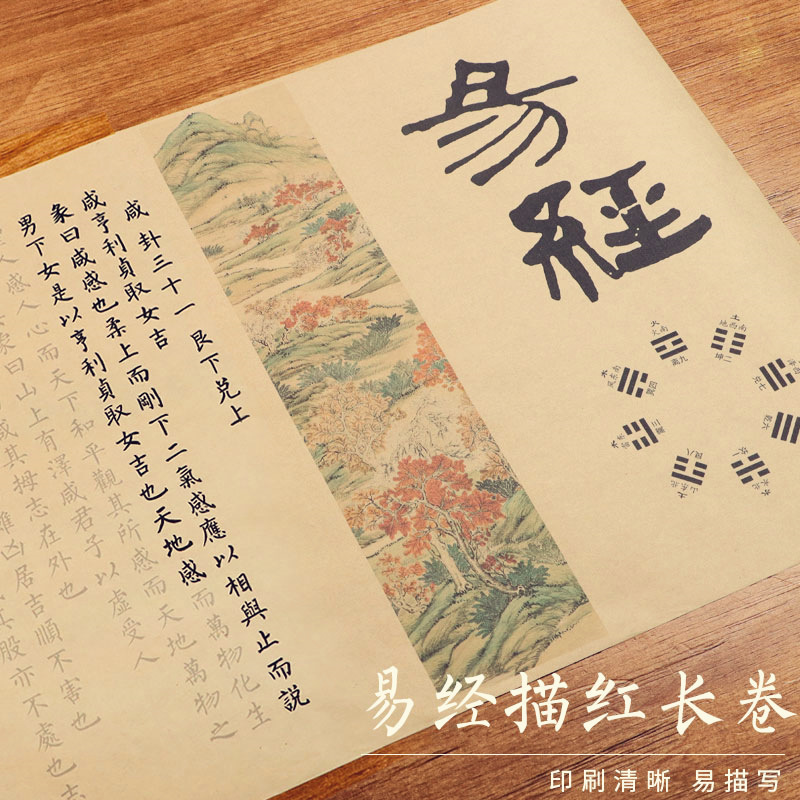 易經
火
南
離九
土
地西南
坤二
木
風東南
咸卦三十一 艮下兌上
咸亨利貞取女吉
彖曰咸感也柔上而剛下二氣感應以相與止而說
男下女是以亨利貞取女吉也天地感而萬物化生
人感人心而天下和平觀其所感而天地萬物之
象曰山上有澤咸君子以虛受人
咸其拇志在外也
雖凶居吉順不害也
其股亦不處也志
易经描红长卷
印刷清晰 易描写